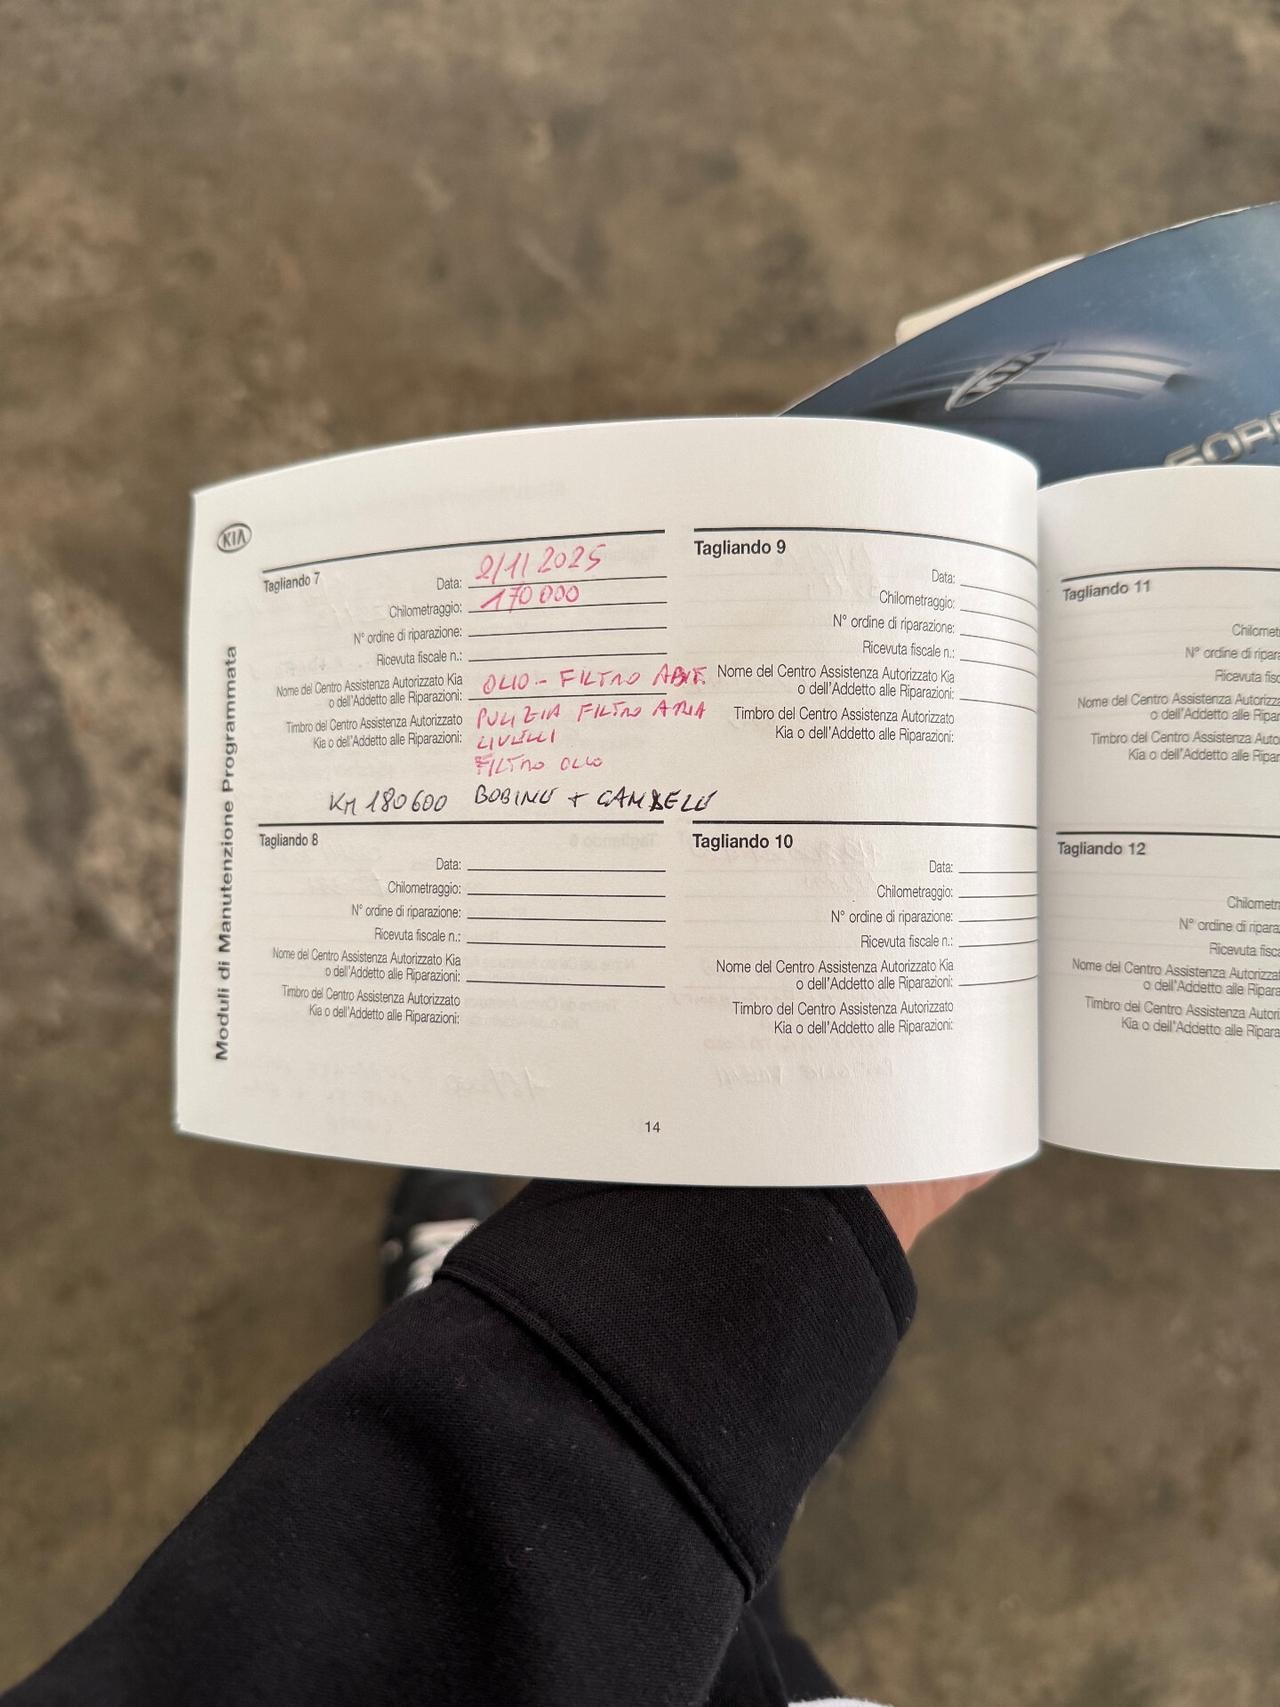 KIA
SORE
KIA
Moduli di Manutenzione Programmata
Tagliando 7
Data: 2/11 2025
Chilometraggio: 170000
N° ordine di riparazione:
Ricevuta fiscale n.:
Nome del Centro Assistenza Autorizzato Kia
o dell'Addetto alle Riparazioni: OLIO - FILTRO ABIT.
Timbro del Centro Assistenza Autorizzato
Kia o dell'Addetto alle Riparazioni: PULIZIA FILTRO ARIA
LIVELLI
FILTRO OLIO
KM 180600 BOBINE + CANDELE
Tagliando 8
Data:
Chilometraggio:
N° ordine di riparazione:
Ricevuta fiscale n.:
Nome del Centro Assistenza Autorizzato Kia
o dell'Addetto alle Riparazioni:
Timbro del Centro Assistenza Autorizzato
Kia o dell'Addetto alle Riparazioni:
Tagliando 9
Data:
Chilometraggio:
N° ordine di riparazione:
Ricevuta fiscale n.:
Nome del Centro Assistenza Autorizzato Kia
o dell'Addetto alle Riparazioni:
Timbro del Centro Assistenza Autorizzato
Kia o dell'Addetto alle Riparazioni:
Tagliando 10
Data:
Chilometraggio:
N° ordine di riparazione:
Ricevuta fiscale n.:
Nome del Centro Assistenza Autorizzato Kia
o dell'Addetto alle Riparazioni:
Timbro del Centro Assistenza Autorizzato
Kia o dell'Addetto alle Riparazioni:
14
Tagliando 11
Chilometr
N° ordine di ripara
Ricevuta fisc
Nome del Centro Assistenza Autorizza
o dell'Addetto alle Ripara
Timbro del Centro Assistenza Auto
Kia o dell'Addetto alle Ripar
Tagliando 12
Chilometr
N° ordine di ripara
Ricevuta fisca
Nome del Centro Assistenza Autorizzat
o dell'Addetto alle Ripara
Timbro del Centro Assistenza Autori
Kia o dell'Addetto alle Ripar